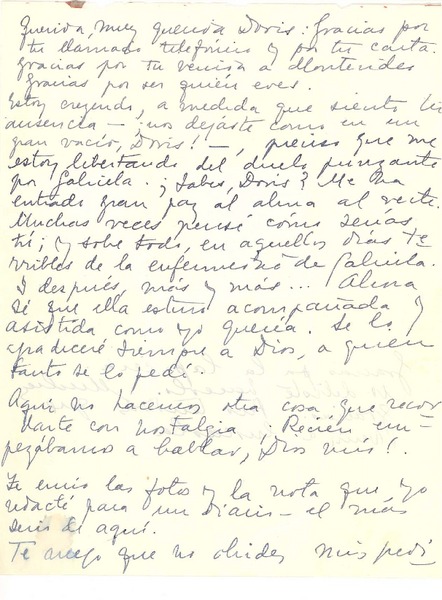 Querida, muy querida Doris: Gracias por
tu llamado telefónico y por tu carta.
Gracias por tu venida a Montevideo
Gracias por ser quién eres.
Estoy creyendo, a medida que siento tu
ausencia — ¡nos dejaste como en un
gran vacío, Doris! —, pienso que me
estoy libertando del duelo punzante
por Gabriela. ¿Sabes, Doris? Me ha
entrado gran paz al alma al verte.
Muchas veces pensé cómo serías
tú; y sobre todo, en aquellos días te
rribles de la enfermedad de Gabriela.
I después, más y más... Ahora
sé que ella estuvo acompañada y
asistida como yo quería. Se lo
agradeceré siempre a Dios, a quien
tanto se lo pedí.
Aquí no hacemos otra cosa que recor
darte con nostalgia. ¡Recién em-
pezábamos a hablar, Dios mío!.
Te envío las fotos y la nota que yo
redacté para un diario — el más
serio de aquí.
Te ruego que no olvides mis pedi